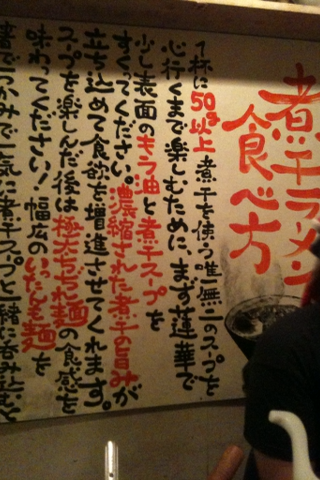 煮干ラーメン
食べ方
1杯に50g以上煮干を使う唯一無二のスープを
心行くまで楽しむために、まず蓮華で
少し表面のキラ油と煮干スープを
すくってください。濃縮された煮干の旨みが
立ち込めて食欲を増進させてくれます。
スープを楽しんだ後は極太ちぢれ麺の食感を
味わってください!幅広のいったんも麺を
箸でつかみで一気に煮干スープと一緒に呑み込むと